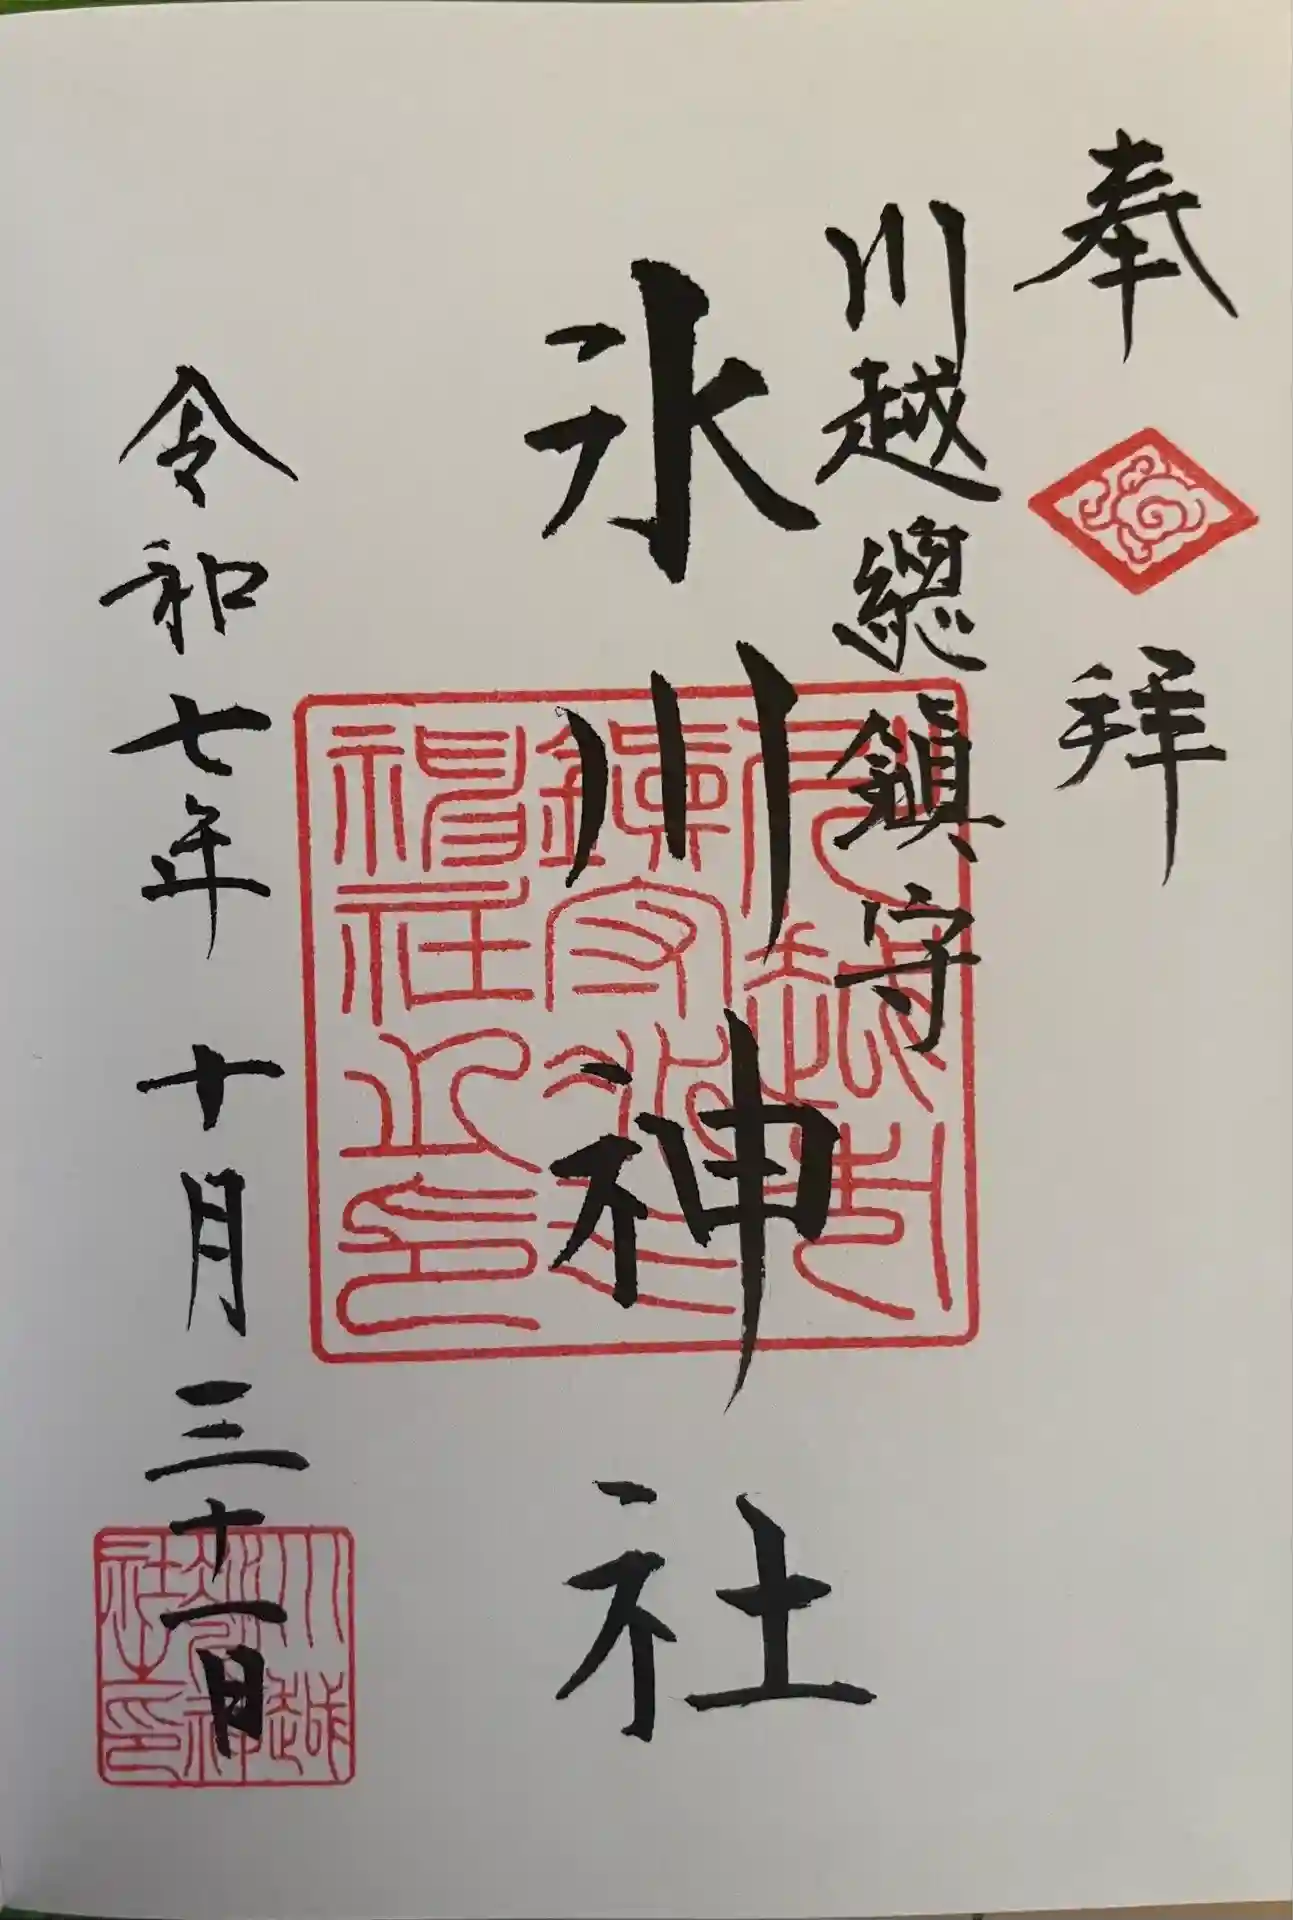 奉拝
川越總鎮守
氷川神社
令和七年十月三十一日
川越氷川神社之印